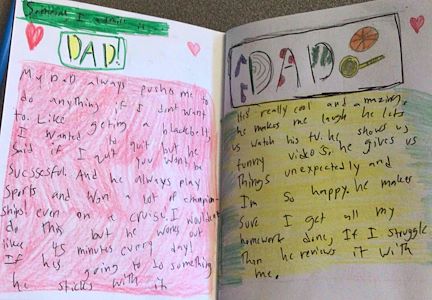 Someone I admire is
DAD!
My DaD always pushs me to
do anything if I dont want
to. Like getting a blackbelt
I wanted to quit but he
Said if I quit you wont be
Sucssesful. And he always play
Sports and won a lot of champion-
ships! even on a cruise I wouldent
do this but he works out
like 45 minutes every day!
If his going to do something
he sticks with it
DAD
He's really cool and amazing,
he makes me laugh he lets
us watch his tv. he shows us
funny videos, he gives us
things unexpectedly and
Im so happy. he makes
Sure I get all my
homework done, If I struggle
Than he reviews it with
me.